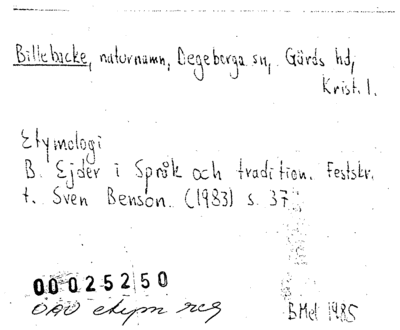 Billebacke, naturnamn, Degeberga sn, Gärds hd,
Krist. l.
Etymologi
B. Ejder i Språk och tradition. Festskr.
t. Sven Benson. (1983) s. 37
00025250
OAU etym reg
BMel 1985